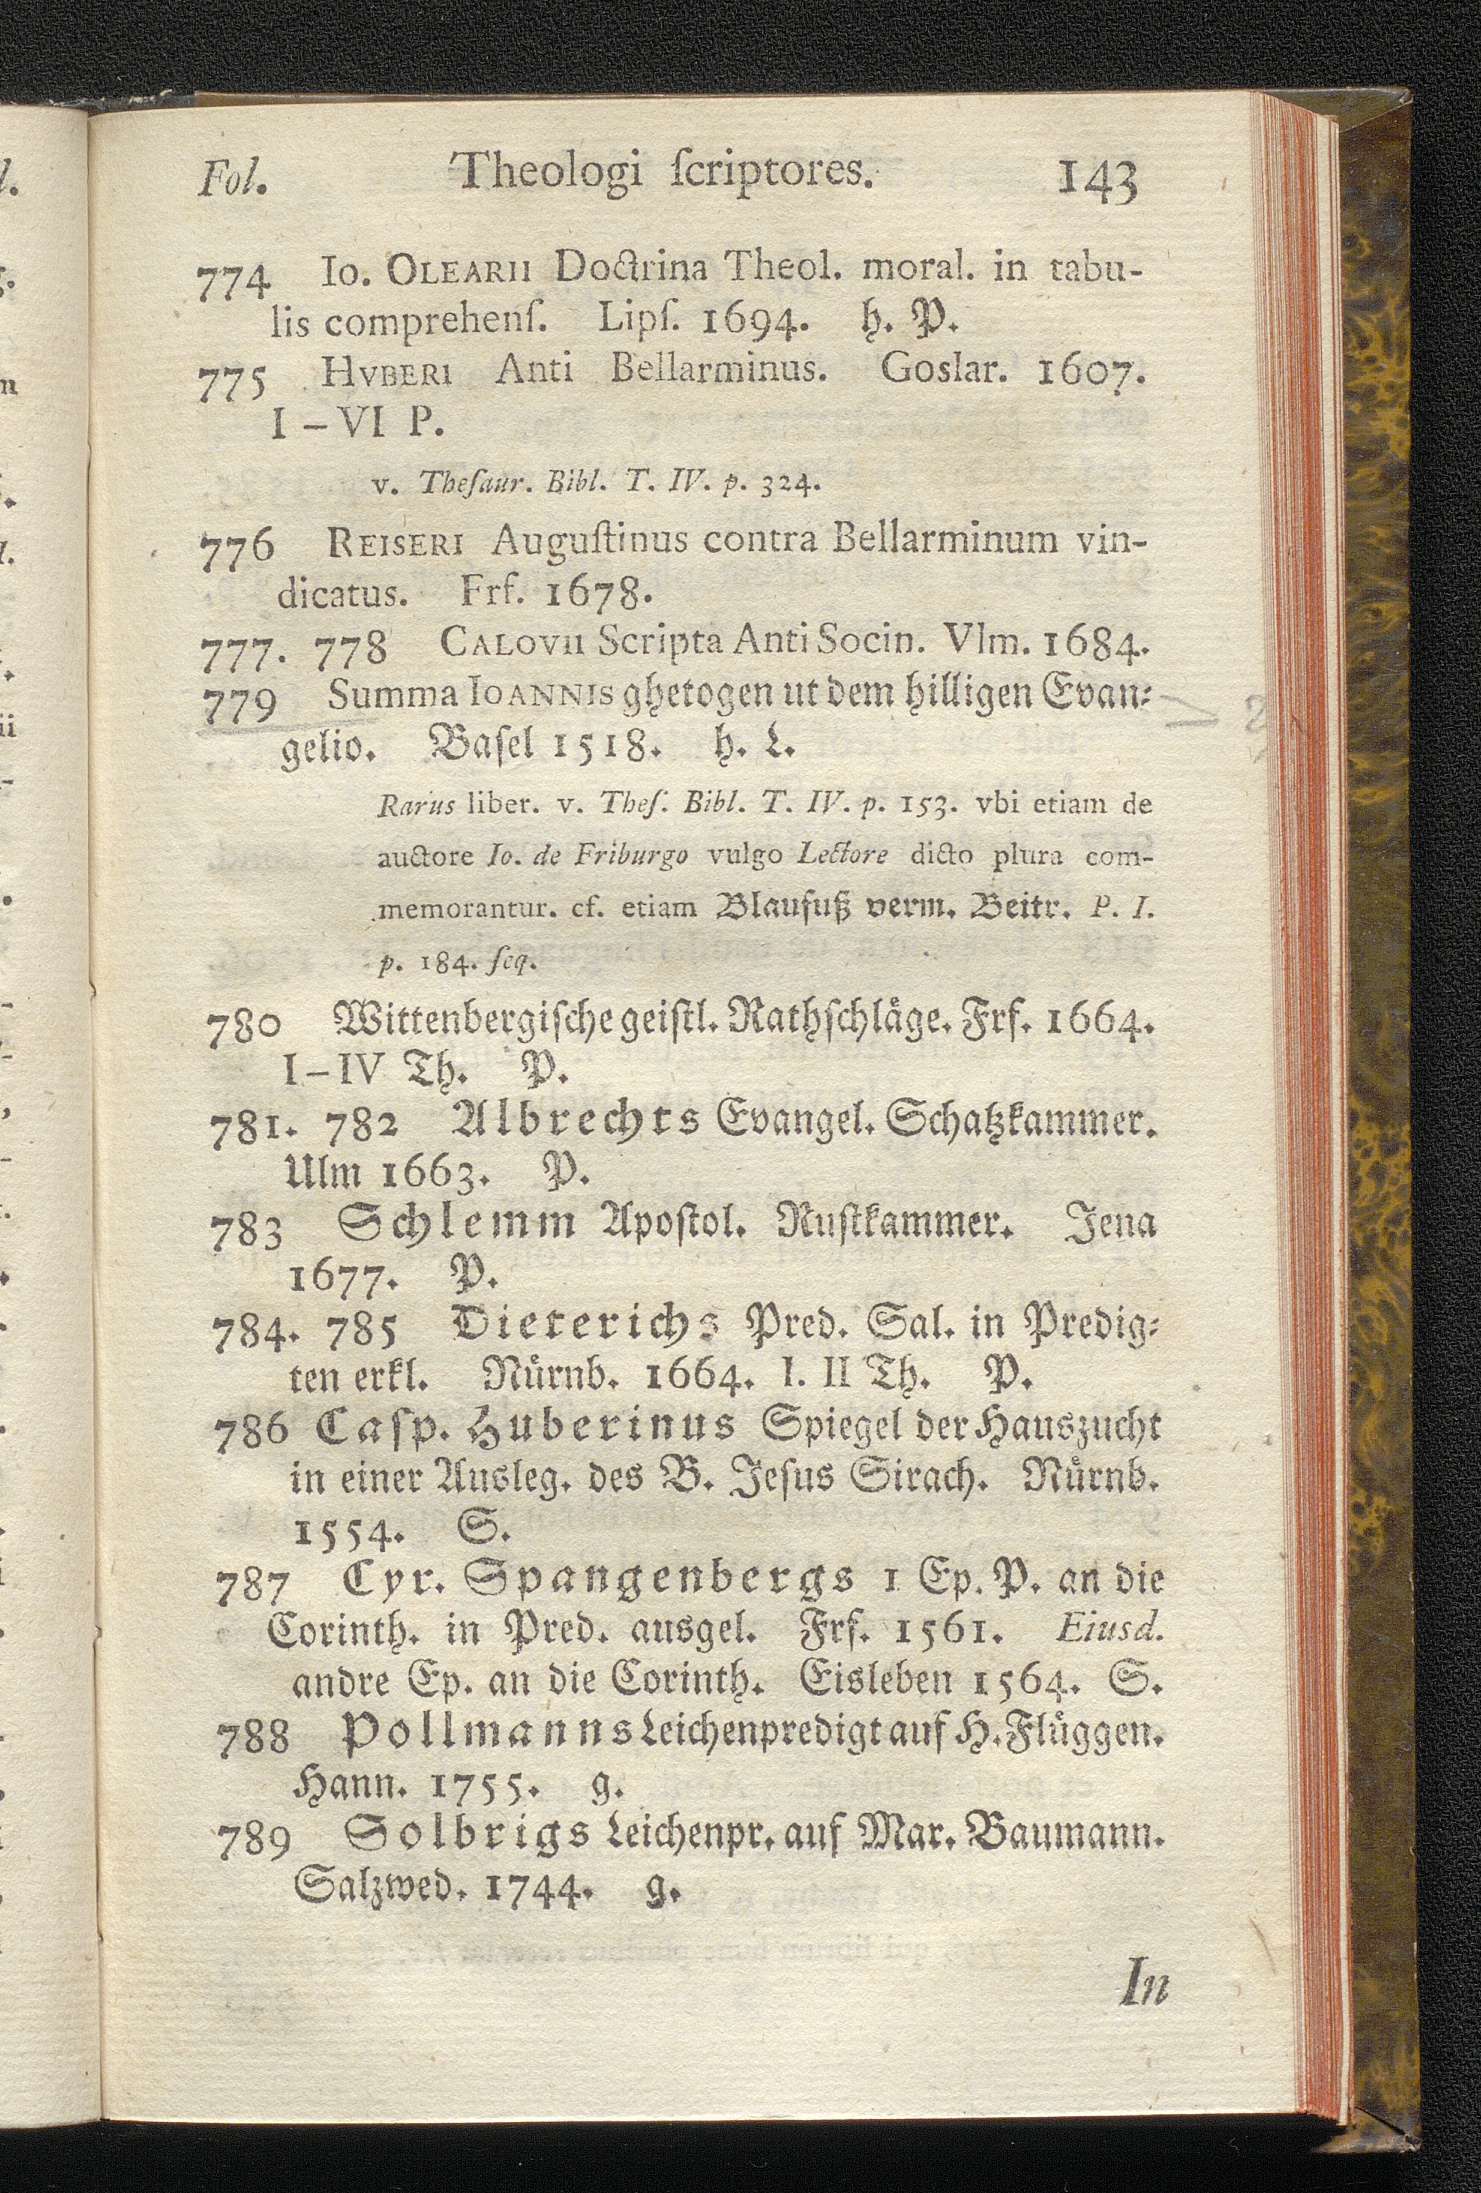 Fol. Theologi ſcriptores. 143
774 Io. OLEARII Doctrina Theol. moral. in tabu-
lis comprehenſ. Lipſ. 1694. h. P.
775 HVBERI Anti Bellarminus. Goslar. 1607.
I – VI P.
v. Theſaur. Bibl. T. IV. p. 324.
776 REISERI Auguſtinus contra Bellarminum vin-
dicatus. Frf. 1678.
777. 778 CALOVII Scripta Anti Socin. Vlm. 1684.
779 Summa IOANNIS ghetogen ut dem hilligen Evan-
gelio. Baſel 1518. h. L.
Rarus liber. v. Theſ. Bibl. T. IV. p. 153. vbi etiam de
auctore Io. de Friburgo vulgo Lectore dicto plura com-
memorantur. cf. etiam Blaufuß verm. Beitr. P. I.
p. 184. ſeq.
780 Wittenbergiſche geiſtl. Rathſchläge. Frf. 1664.
I – IV Th. P.
781. 782 Albrechts Evangel. Schatzkammer.
Ulm 1663. P.
783 Schlemm Apoſtol. Ruſtkammer. Jena
1677. P.
784. 785 Dieterichs Pred. Sal. in Predig-
ten erkl. Nürnb. 1664. I. II Th. P.
786 Caſp. Huberinus Spiegel der Hauszucht
in einer Ausleg. des B. Jeſus Sirach. Nürnb.
1554. S.
787 Cyr. Spangenbergs 1 Ep. P. an die
Corinth. in Pred. ausgel. Frf. 1561. Eiusd.
andre Ep. an die Corinth. Eisleben 1564. S.
788 Pollmanns Leichenpredigt auf H. Flüggen.
Hann. 1755. g.
789 Solbrigs Leichenpr. auf Mar. Baumann.
Salzwed. 1744. g.
In